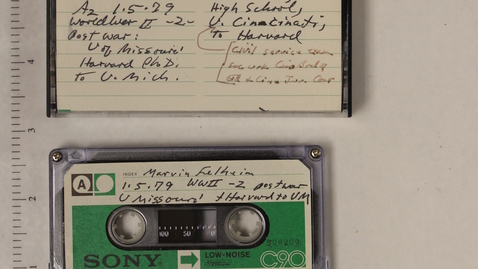 A2 1.5.79
World War II -2-
post war:
U of Missouri
Harvard Ph D.
to U. Mich.
High School,
U. Cincinnati,
to Harvard
Civil service exam
4
3
2
A
INDEX Marvin Felheim
1.5.79 WWII -2 postwar
U Missouri + Harvard to UM
100 50 0
SONY
LOW-NOISE
C90